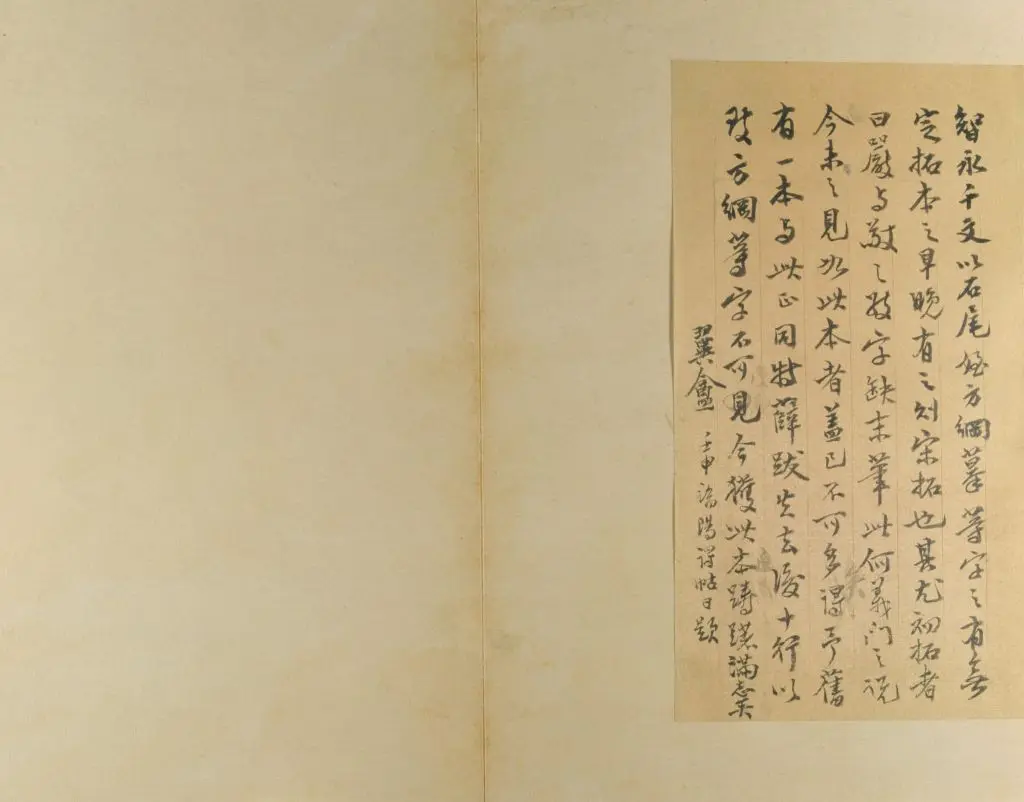 智永千文以石尾姪方綱摹等字之有無
定拓本之早晚有之則宋拓也其尤初拓者
曰嚴與敬之數字缺末筆此何義門之說
今未之見如此本者蓋已不可多得予舊
有一本與此正同特薛跋失去後十行以
致方綱等字不可見今獲此本躊躇滿志矣
翼盦 壬申 陽得帖日題